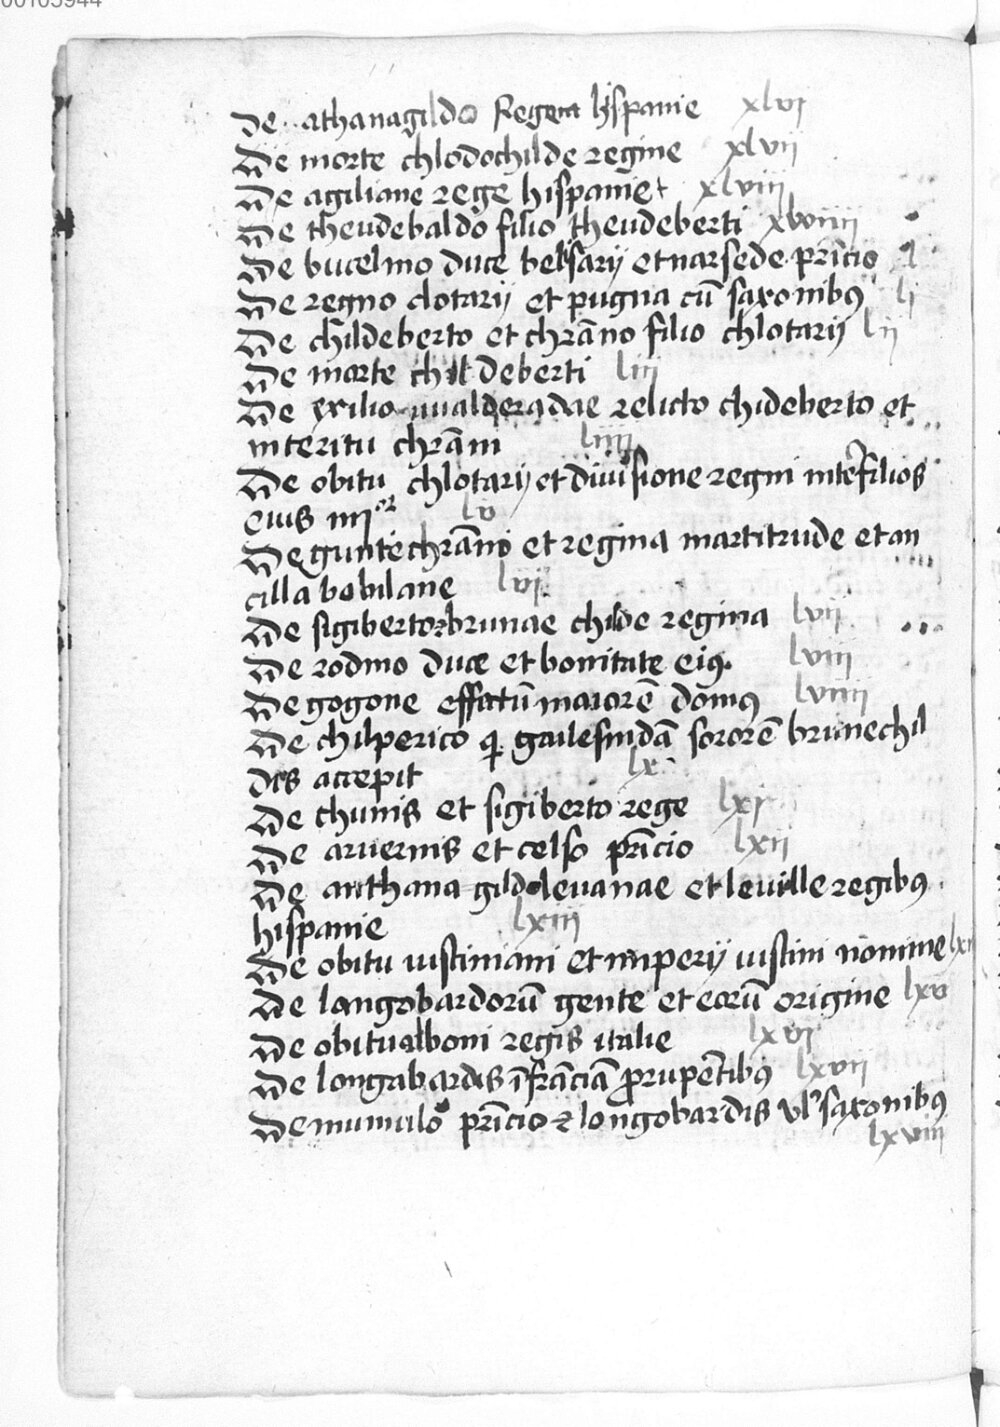 00105944
De athanagildo Regem hispanie xlvi
De morte chlodochilde regine xlvii
De agiliane rege hispanie xlviii
De theudebaldo filio theudeberti xlviiii
De bucelino duce belisarij et narsede pr̄icio l
De regno clotarij et pugna cū saxonibꝰ li
De childeberto et chrāno filio chlotarij lii
De morte childeberti liii
De exilio uualderadae relicto chideberto et
interitu chrāni liiii
De obitu chlotarij et diuisione regni inter filios
eius iiiior lv
De guntechrāno et regina martitrude et an
cilla bobilane lvi
De sigiberto brunae childe regina lvii
De rodino duce et bonitate eiꝰ lviii
De gogone effectū maiorē domꝰ lviiii
De chilperico qi gailesuidā sororē brunechil
dis accepit lx
De chunis et sigiberto rege lxi
De aruernis et celso pr̄icio lxii
De anthana gildo leuanae et leuille regibꝰ
hispanie lxiii
De obitu iustiniani et imperij iustini nomine
De langobardorū gente et eorū origine lxv
De obitu alboni regis italie lxvi
De longabardis ī frāciā prūpētibꝰ lxvii
De mumulo pr̄icio & longobardis ul' saxonibꝰ
lxviii